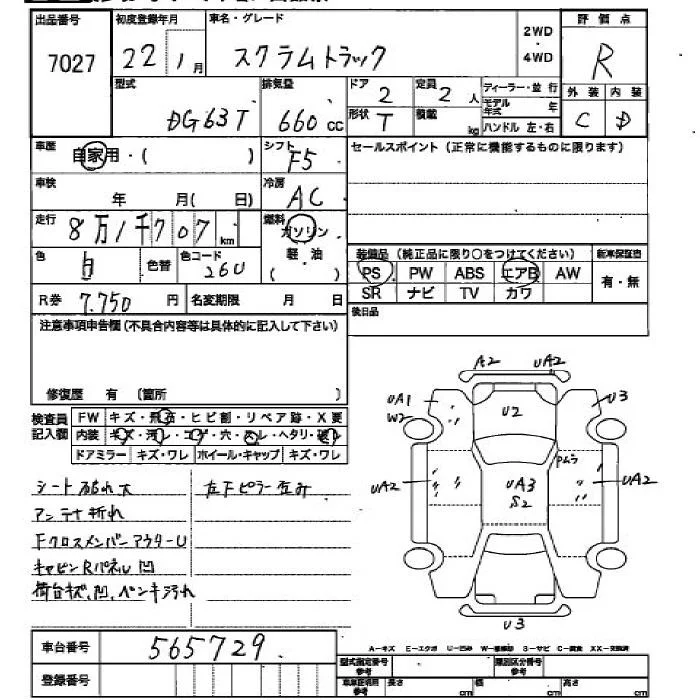 出品番号 初度登録年月 車名・グレード 2WD・4WD 評価点
7027 22年1月 スクラムトラック R
型式 排気量 ドア 定員 ディーラー・並行 外装 内装
DG63T 660cc 2 2人 モデル年式 年 C D
形状 T 積載 kg ハンドル 左・右
車歴 自家用・( ) シフト F5 セールスポイント(正常に機能するものに限ります)
車検 年 月( 日) 冷房 AC
走行 8万1千707km 燃料 ガソリン 軽・油
色 白 色替 色コード 26U 装備品(純正品に限り○をつけてください) 新車保証書
PS PW ABS エアB AW 有・無
SR ナビ TV カワ
R券 7.750円 名変期限 月 日 後日品
注意事項申告欄(不具合内容等は具体的に記入して下さい)
修復歴 有 (箇所 )
検査員記入欄 FW キズ・飛石・ヒビ割・リペア跡・X要
内装 キズ・汚レ・コゲ・穴・スレ・ヘタリ・破レ
ドアミラー キズ・ワレ ホイール・キャップ キズ・ワレ
シート破れ大 左下ピラー歪み
アンテナ折れ
FクロスメンバーアウターU
キャビンRパネル凹
荷台キズ、凹、ペンキ汚れ
A2 UA2
UA1 U3
W2 U2
Pムラ
UA2 UA3 UA2
S2
U3
車台番号 565729
A-キズ E-エクボ U-凹み S-サビ C-腐食 XX-交換済
登録番号
型式指定番号 参考 類別区分番号 参考
車車証利用 参考 長さ cm 幅 cm 高さ cm